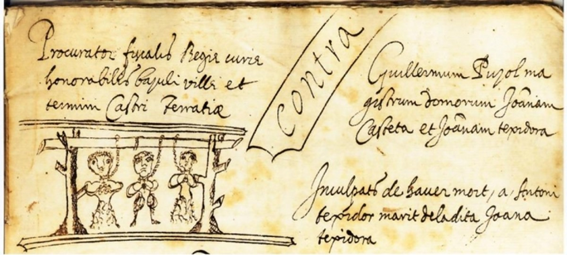 Procurator fiscalis Regie curie
honorabilis bajuli ville et
termini Castri Terratiæ
contra
Guillermum Pujol ma
gistrum domorum Joānam
Casteta et Joānam texidora
Inculpats de haver mort, a, Antoni
texidor marit de la dita Joana
texidora